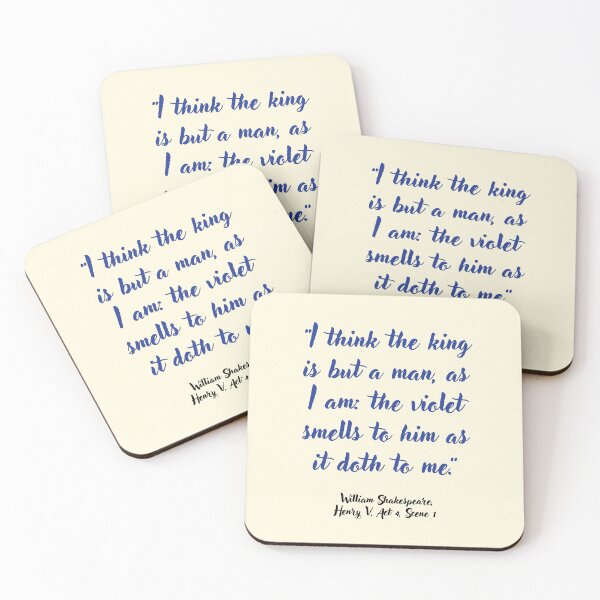 "I think the king
is but a man, as
I am: the violet
him as
me."
"I think the king
is but a man, as
I am: the violet
smells to him as
it doth to me."
"I think the king
is but a man, as
I am: the violet
smells to him as
it doth to
William
Henry V, Act
"I think the king
is but a man, as
I am: the violet
smells to him as
it doth to me."
William Shakespeare,
Henry V, Act 4, Scene 1